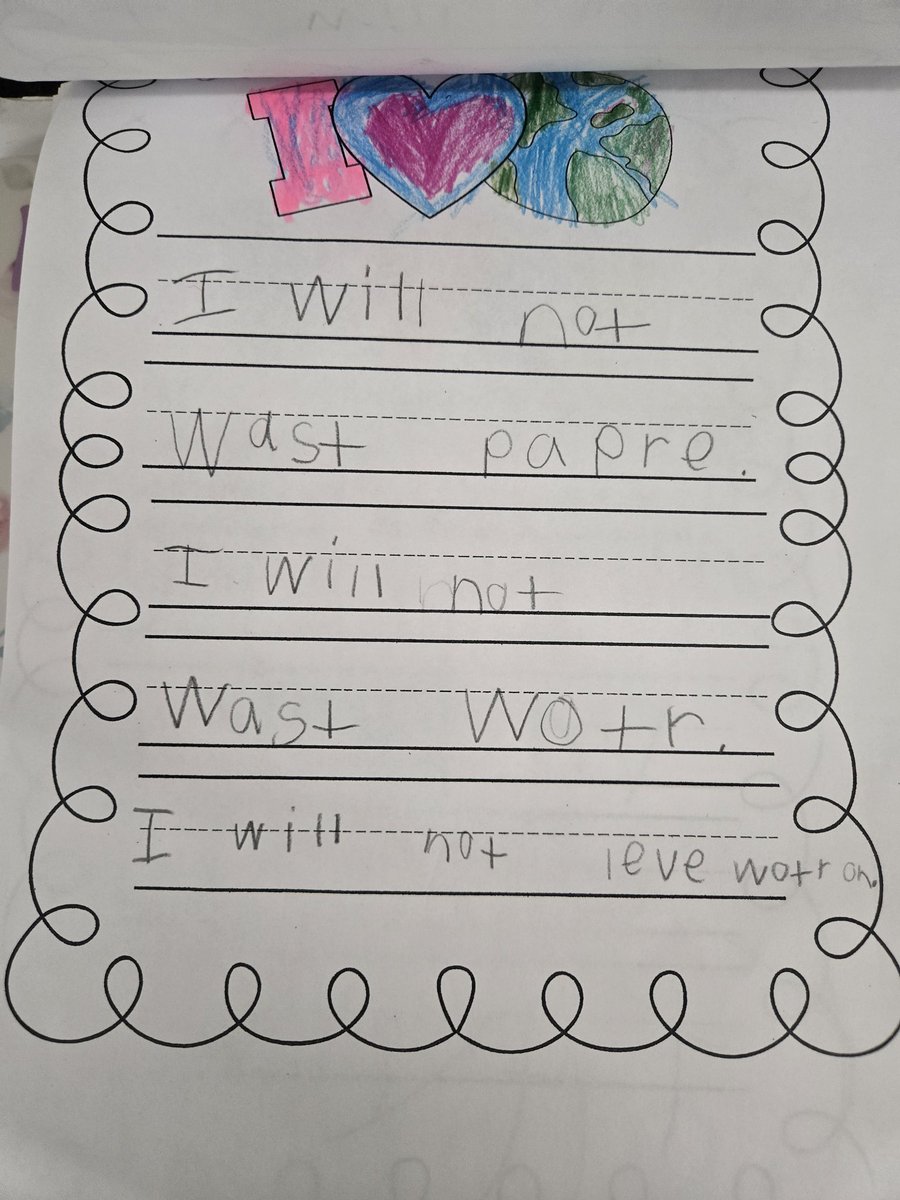 I
I will not
Wast papre.
I will not
Wast Wotr.
I will not leve wotr on.